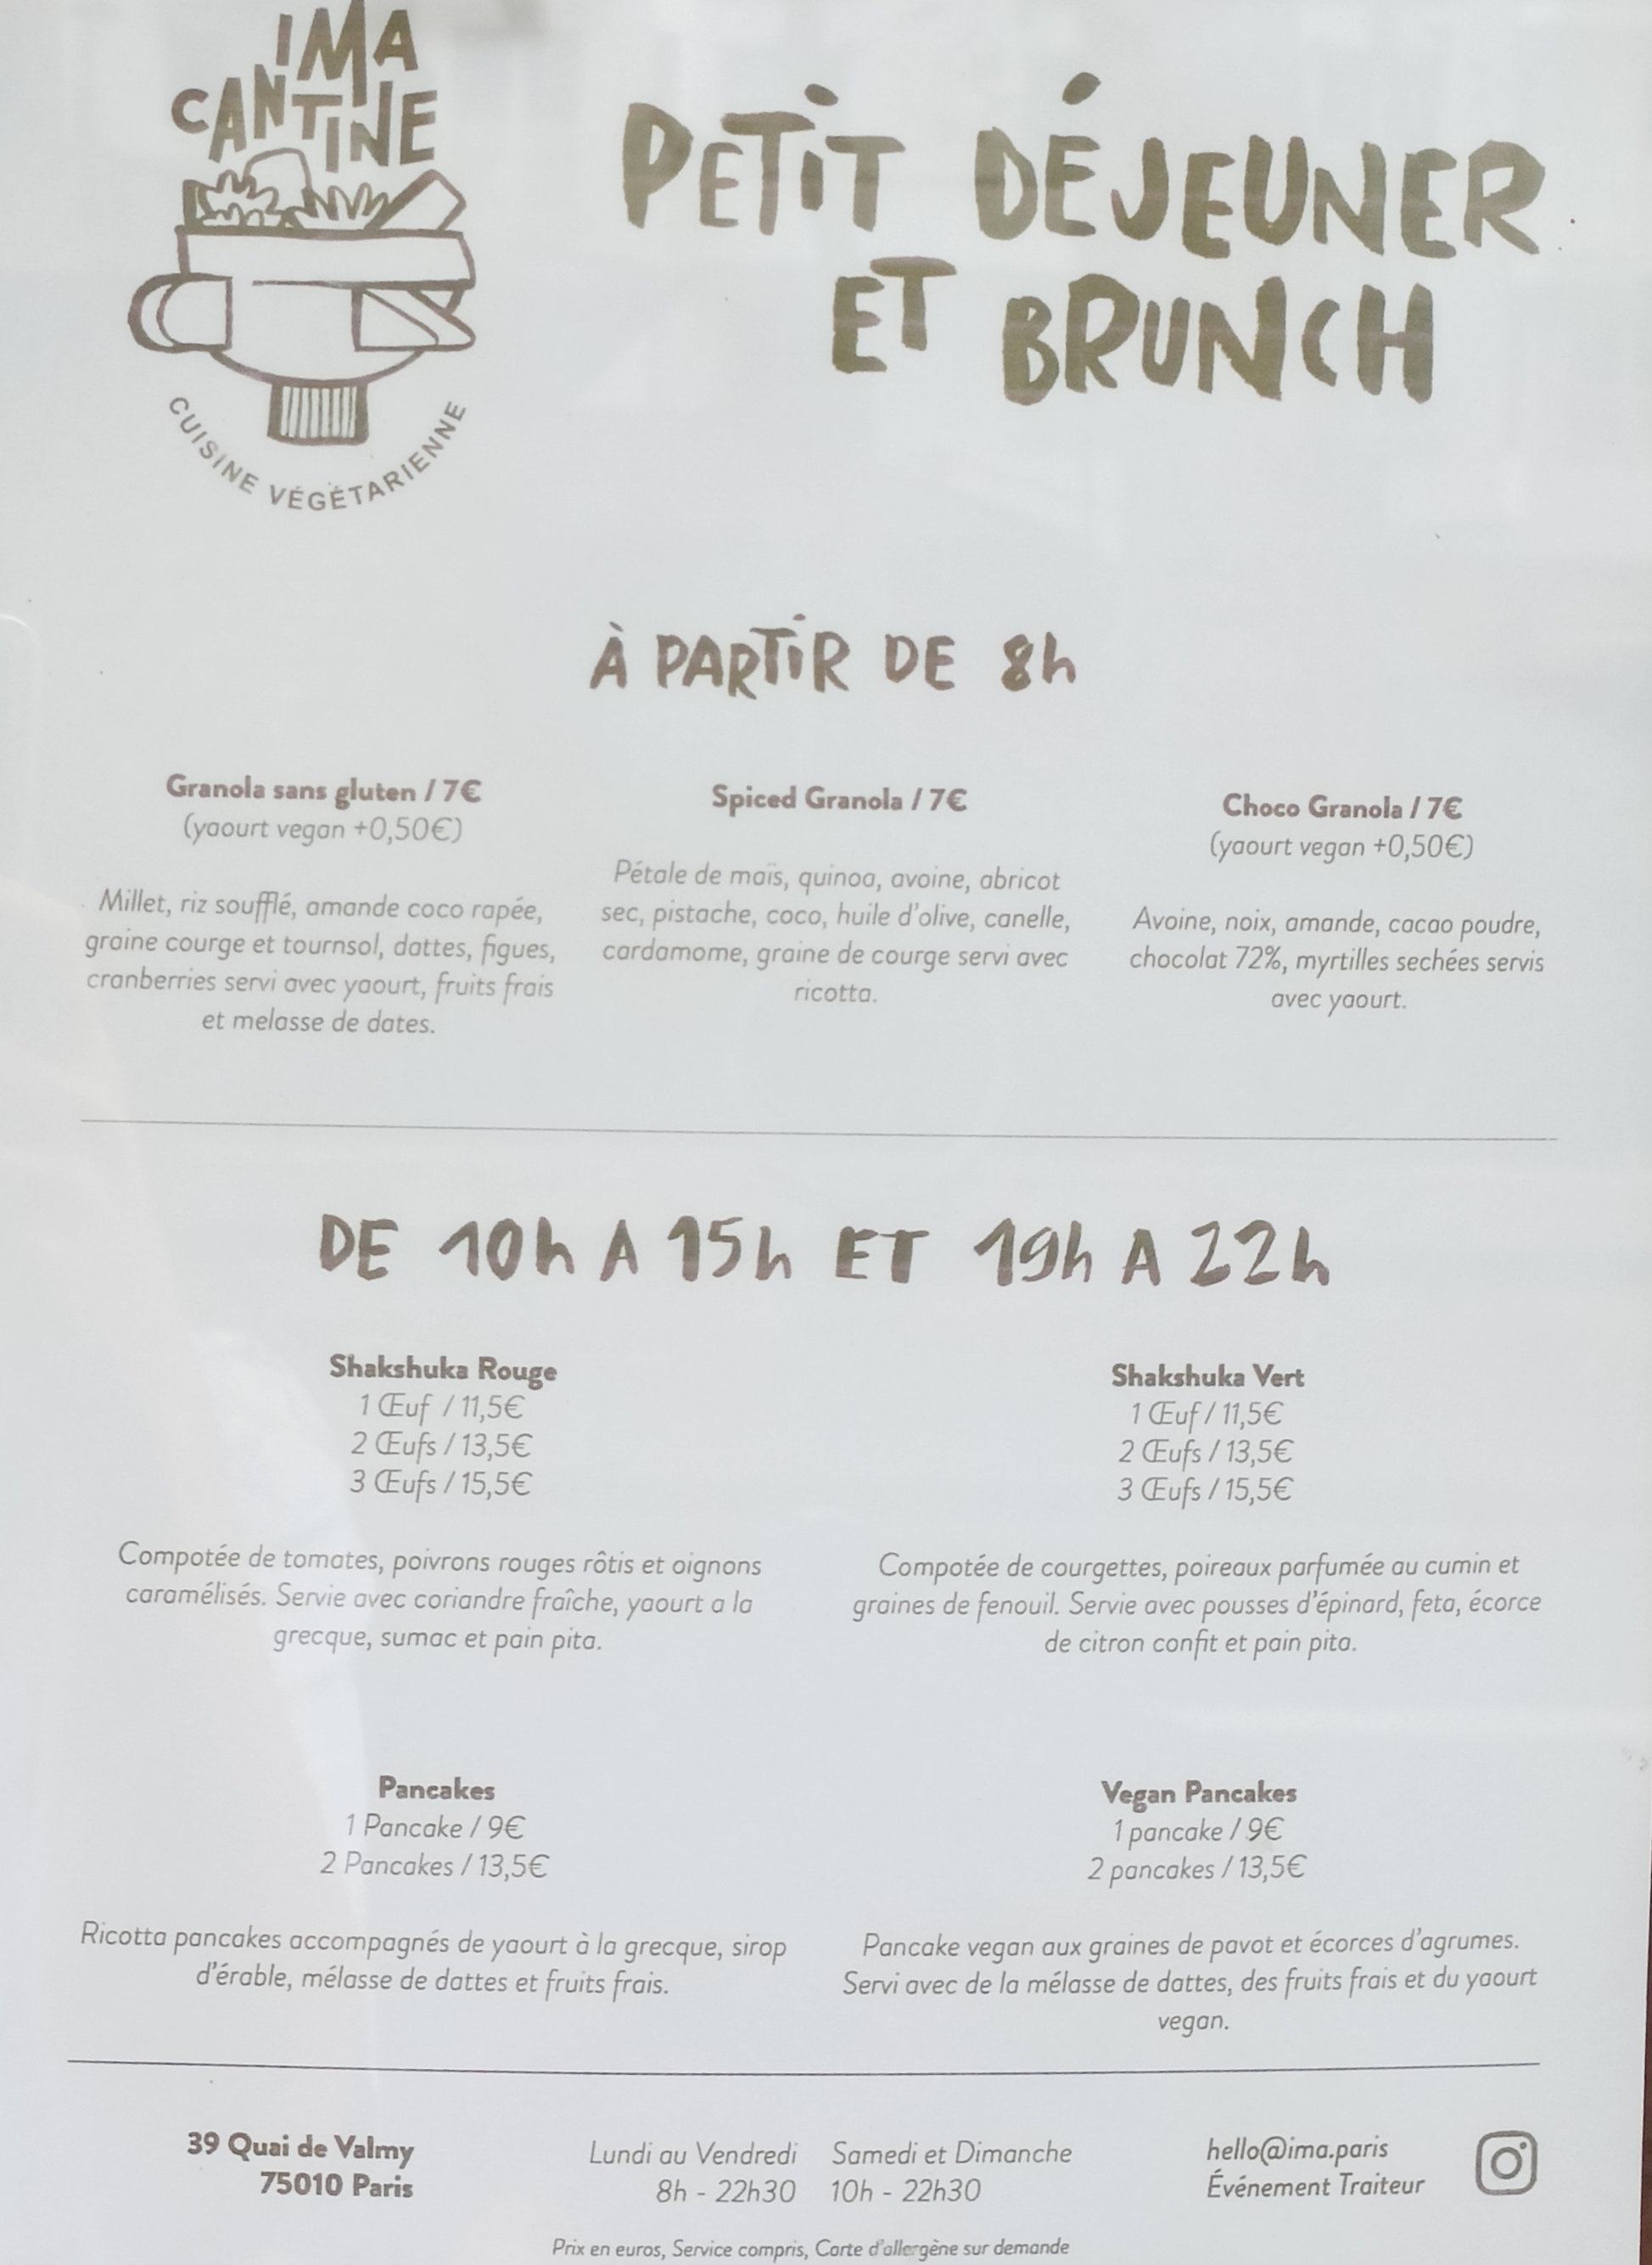 IMA
CANTINE
CUISINE VÉGÉTARIENNE
PETIT DÉJEUNER
ET BRUNCH
À PARTIR DE 8h
Granola sans gluten / 7€
(yaourt vegan +0,50€)
Millet, riz soufflé, amande coco rapée,
graine courge et tournsol, dattes, figues,
cranberries servi avec yaourt, fruits frais
et melasse de dates.
Spiced Granola / 7€
Pétale de maïs, quinoa, avoine, abricot
sec, pistache, coco, huile d'olive, canelle,
cardamome, graine de courge servi avec
ricotta.
Choco Granola / 7€
(yaourt vegan +0,50€)
Avoine, noix, amande, cacao poudre,
chocolat 72%, myrtilles sechées servis
avec yaourt.
DE 10h A 15h ET 19h A 22h
Shakshuka Rouge
1 Œuf / 11,5€
2 Œufs / 13,5€
3 Œufs / 15,5€
Compotée de tomates, poivrons rouges rôtis et oignons
caramélisés. Servie avec coriandre fraîche, yaourt a la
grecque, sumac et pain pita.
Shakshuka Vert
1 Œuf / 11,5€
2 Œufs / 13,5€
3 Œufs / 15,5€
Compotée de courgettes, poireaux parfumée au cumin et
graines de fenouil. Servie avec pousses d'épinard, feta, écorce
de citron confit et pain pita.
Pancakes
1 Pancake / 9€
2 Pancakes / 13,5€
Ricotta pancakes accompagnés de yaourt à la grecque, sirop
d'érable, mélasse de dattes et fruits frais.
Vegan Pancakes
1 pancake / 9€
2 pancakes / 13,5€
Pancake vegan aux graines de pavot et écorces d'agrumes.
Servi avec de la mélasse de dattes, des fruits frais et du yaourt
vegan.
39 Quai de Valmy
75010 Paris
Lundi au Vendredi
8h - 22h30
Samedi et Dimanche
10h - 22h30
hello@ima.paris
Événement Traiteur
Prix en euros, Service compris, Carte d'allergène sur demande